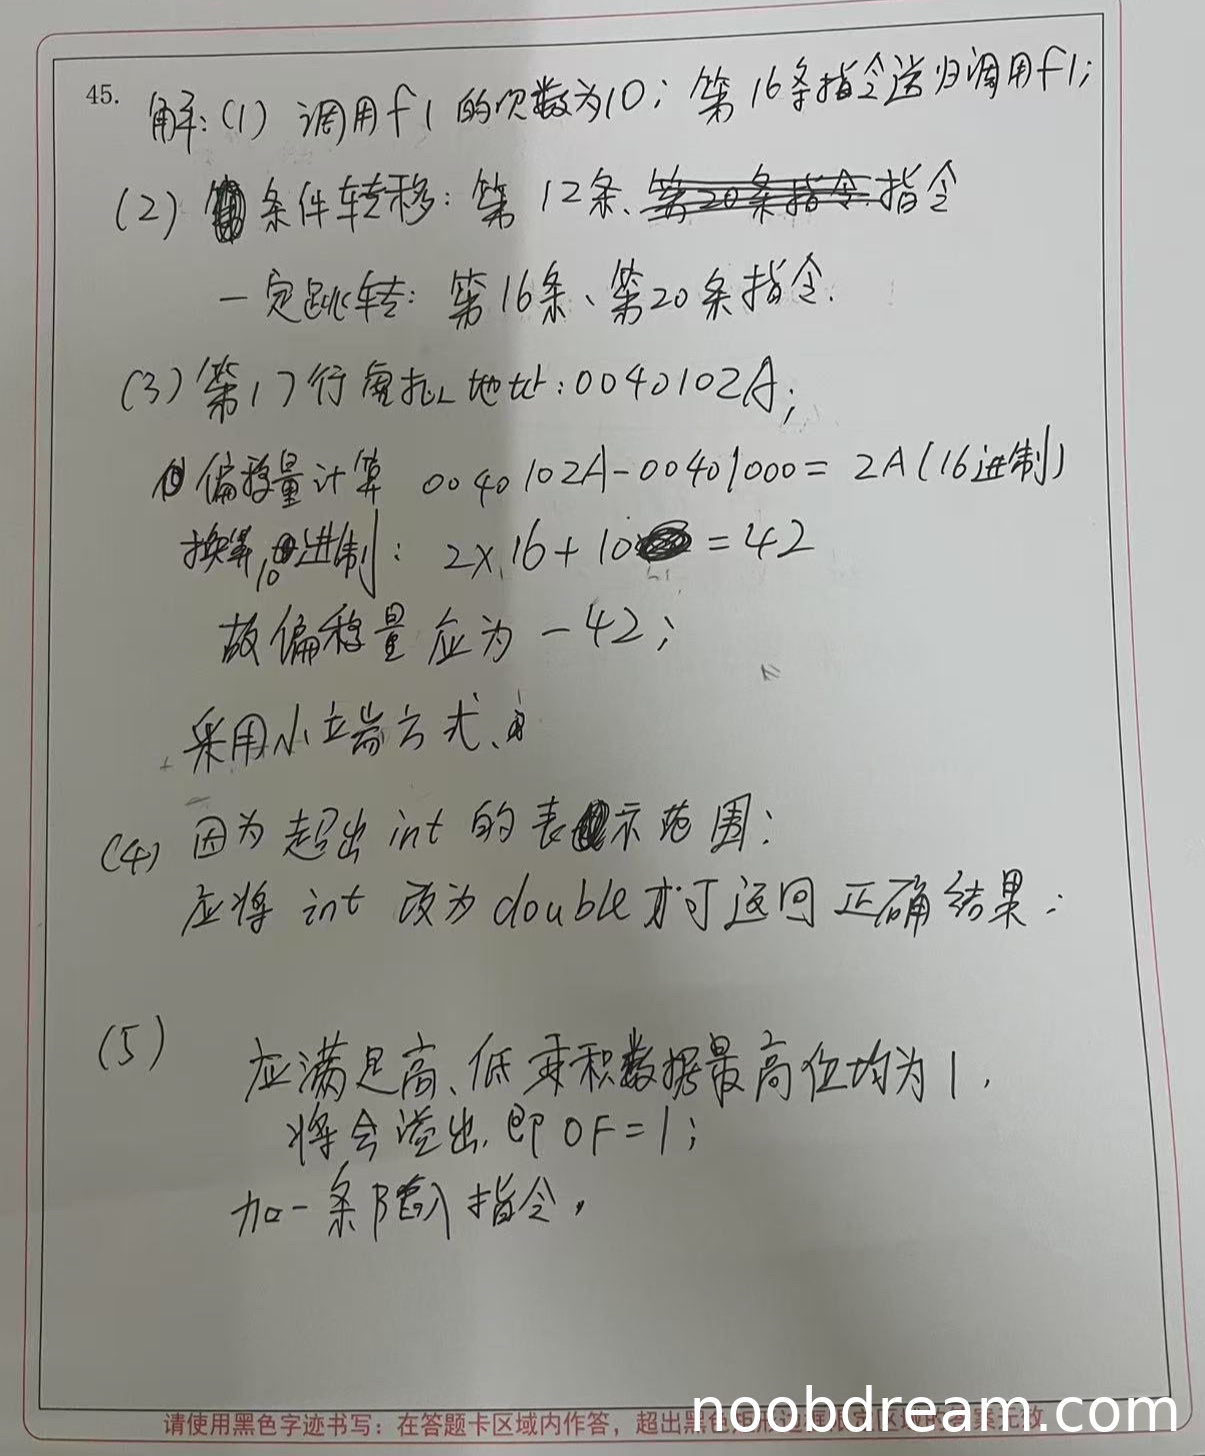 45. 解:(1) 调用f1的次数为10; 第16条指令递归调用f1;
(2) 条件转移: 第12条、指令
一定跳转: 第16条、第20条指令.
(3) 第17行虚拟地址:0040102A;
偏移量计算 0040102A-00401000= 2A(16进制)
换算10进制: 2×16+10=42
故偏移量应为 -42;
采用小端方式、
(4) 因为超出int的表示范围;
应将 int 改为double才可返回正确结果;
(5)
应满足高、低乘积数据最高位均为1,
将会溢出.即OF=1;
加一条陷入指令.
请使用黑色字迹书写:在答题卡区域内作答,超出黑色
noobdream.com